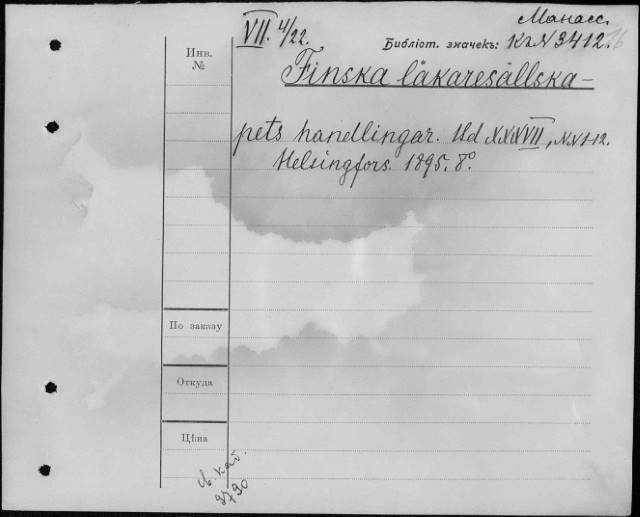 Манасс.
VII. 4/22.
Библіот. значекъ: К2N3412.
Инв.
№
Finska läkaresällska-
pets handlingar. Bd XXXVII, NN 1-12.
Helsingfors. 1895. 8°.
По заказу
Откуда
Цѣна
каб.
3730